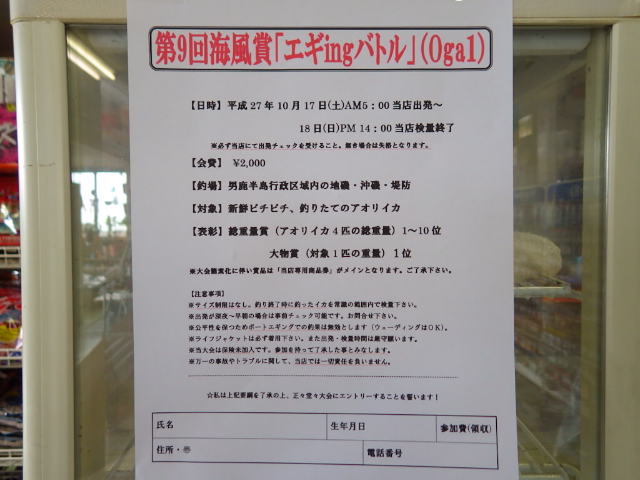 第9回海風賞「エギingバトル」(Oga1)
【日時】平成27年10月17日(土)AM5:00当店出発～
18日(日)PM14:00当店検量終了
※必ず当店にて出発チェックを受けること。無き場合は失格となります。
【会費】 ¥2,000
【釣場】男鹿半島行政区域内の地磯・沖磯・堤防
【対象】新鮮ピチピチ、釣りたてのアオリイカ
【表彰】総重量賞（アオリイカ4匹の総重量）1～10位
大物賞（対象1匹の重量）1位
※大会簡素化に伴い賞品は「当店専用商品券」がメインとなります。ご了承下さい。
【注意事項】
※サイズ制限はなし。釣り終了時に釣ったイカを常識の範囲内で検量下さい。
※出発が深夜～早朝の場合は事前チェック可能です。お問合せ下さい。
※公平性を保つためボートエギングでの釣果は無効とします（ウェーディングはOK）。
※ライフジャケットは必ず着用下さい。また出発・検量時間は厳守願います。
※当大会は保険未加入です。参加を持って了承した事とみなします。
※万一の事故やトラブルに関して、当店では一切責任を負いません。
☆私は上記要綱を了承の上、正々堂々大会にエントリーすることを誓います！
氏名
生年月日
参加費(領収)
住所・〒
電話番号